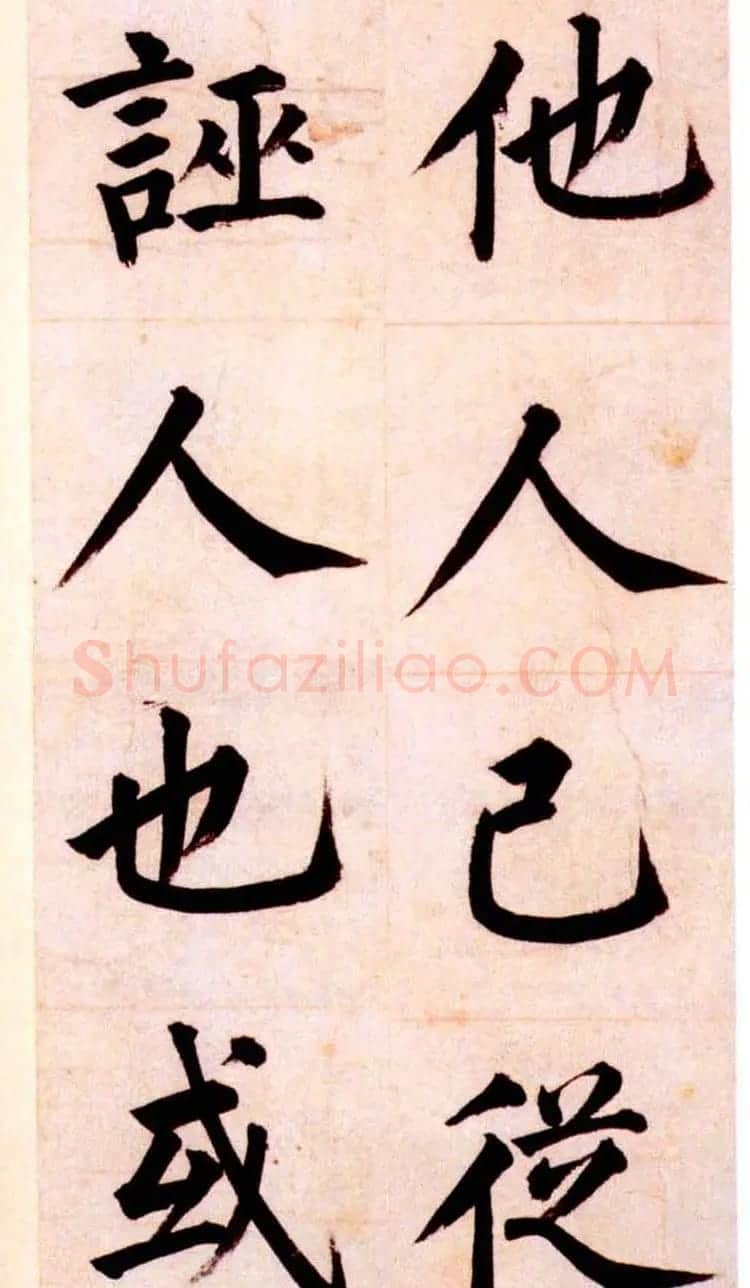 他人己從
誣人也或
Shufaziliao.COM